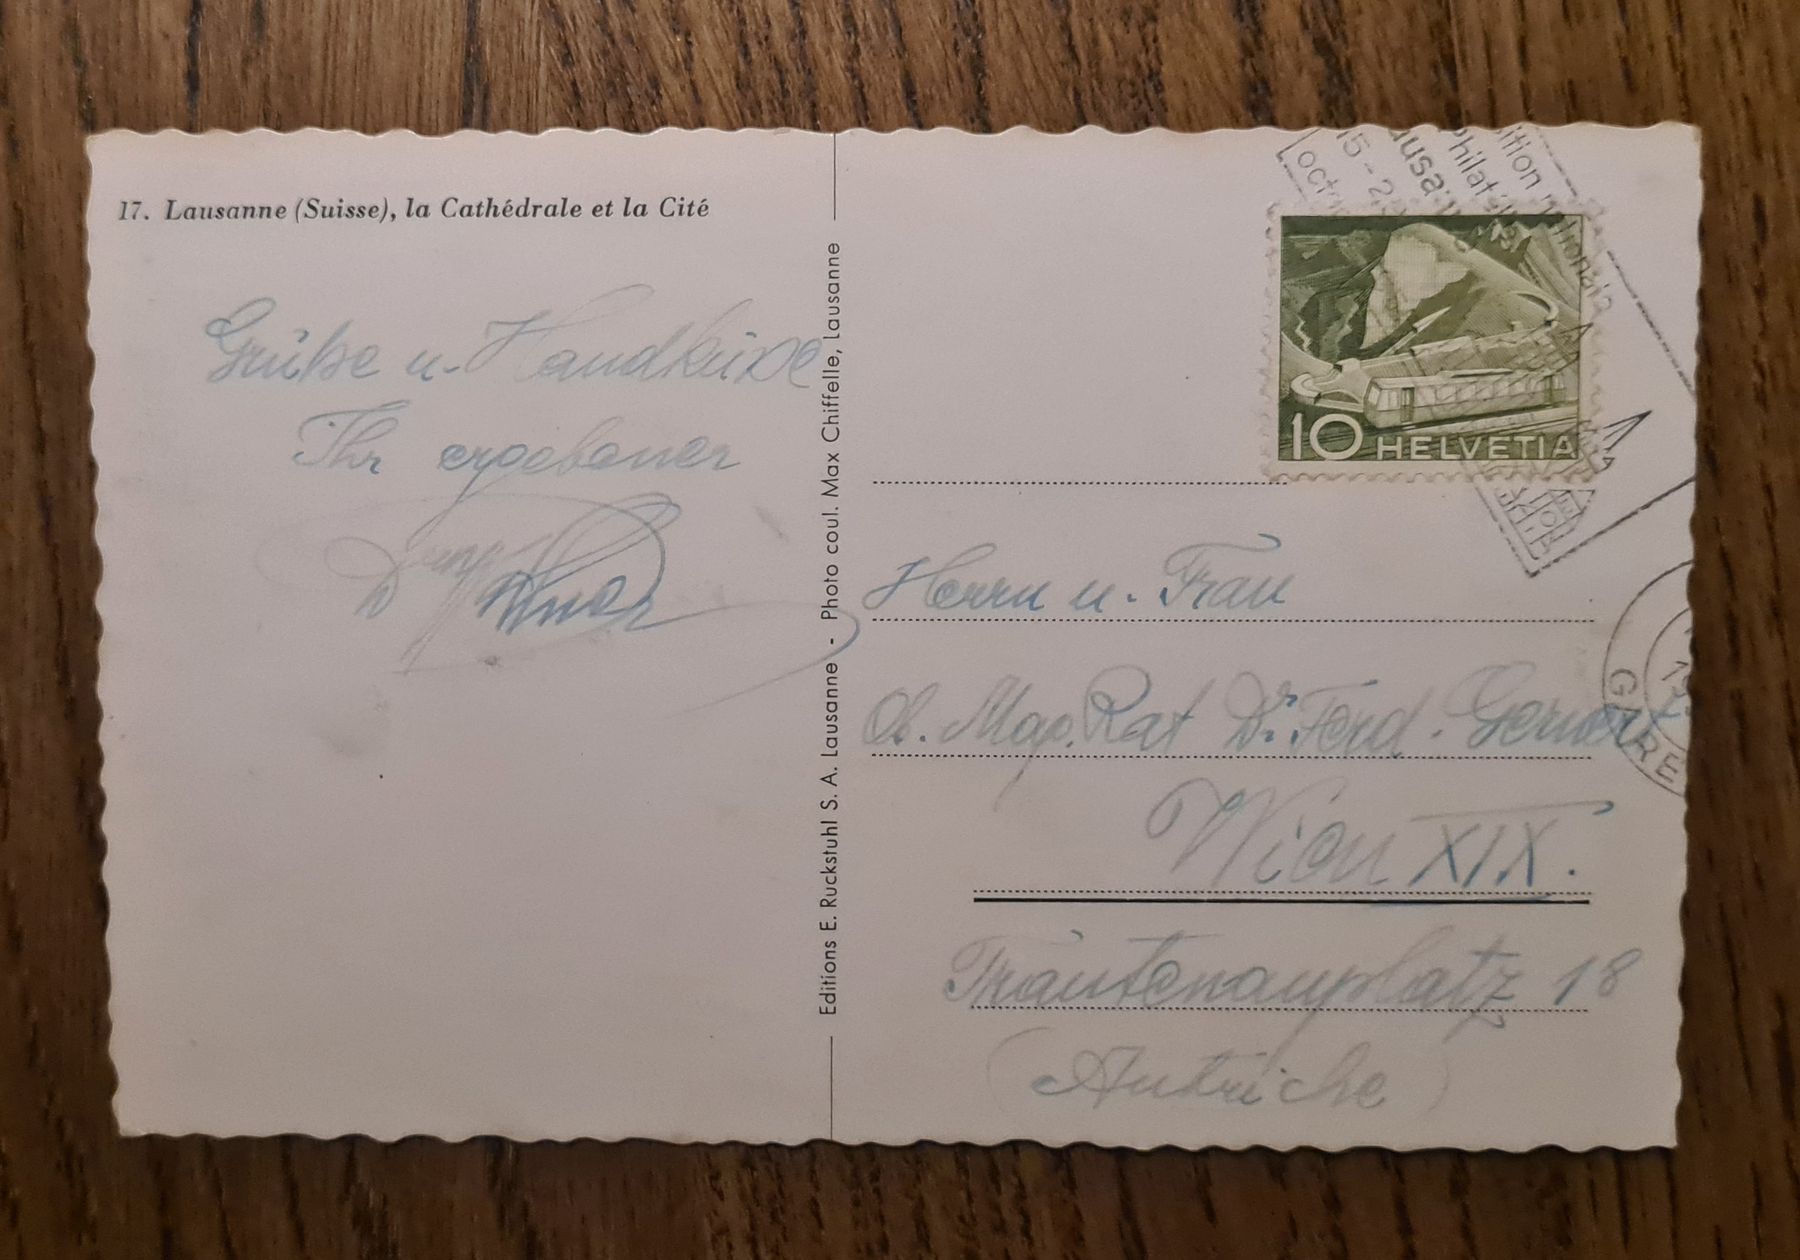 17. Lausanne (Suisse), la Cathédrale et la Cité
Grüße u. Handküsse
Ihr ergebener
Editions E. Ruckstuhl S. A. Lausanne - Photo coul. Max Chiffelle, Lausanne
10 HELVETIA
Herrn u. Frau
Ob. Mag. Rat Dr. Ferd.
Wien XIX.
Trautenauplatz 18
(Autriche)
GARE